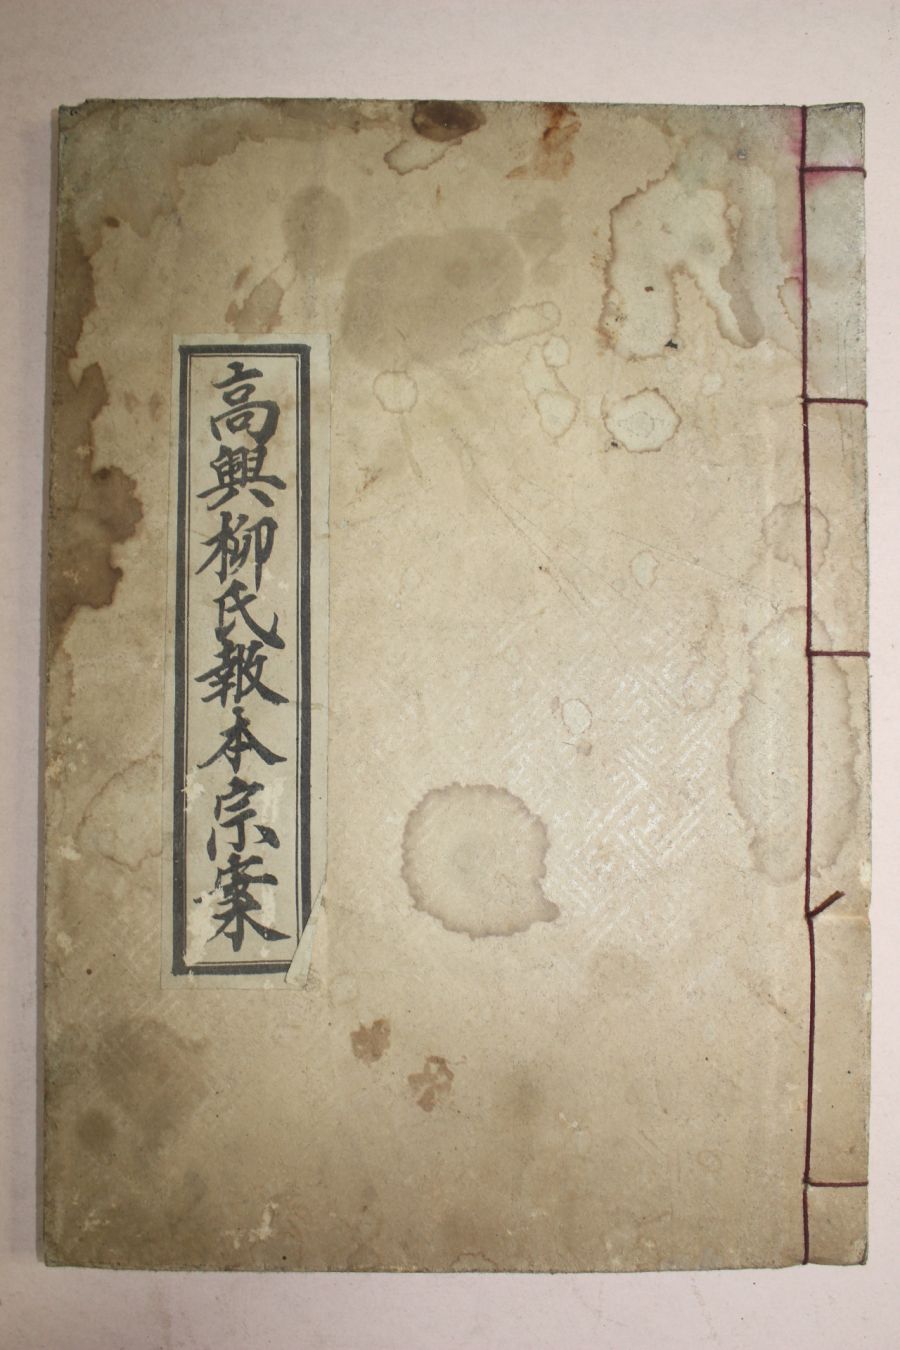 高興柳氏報本宗案